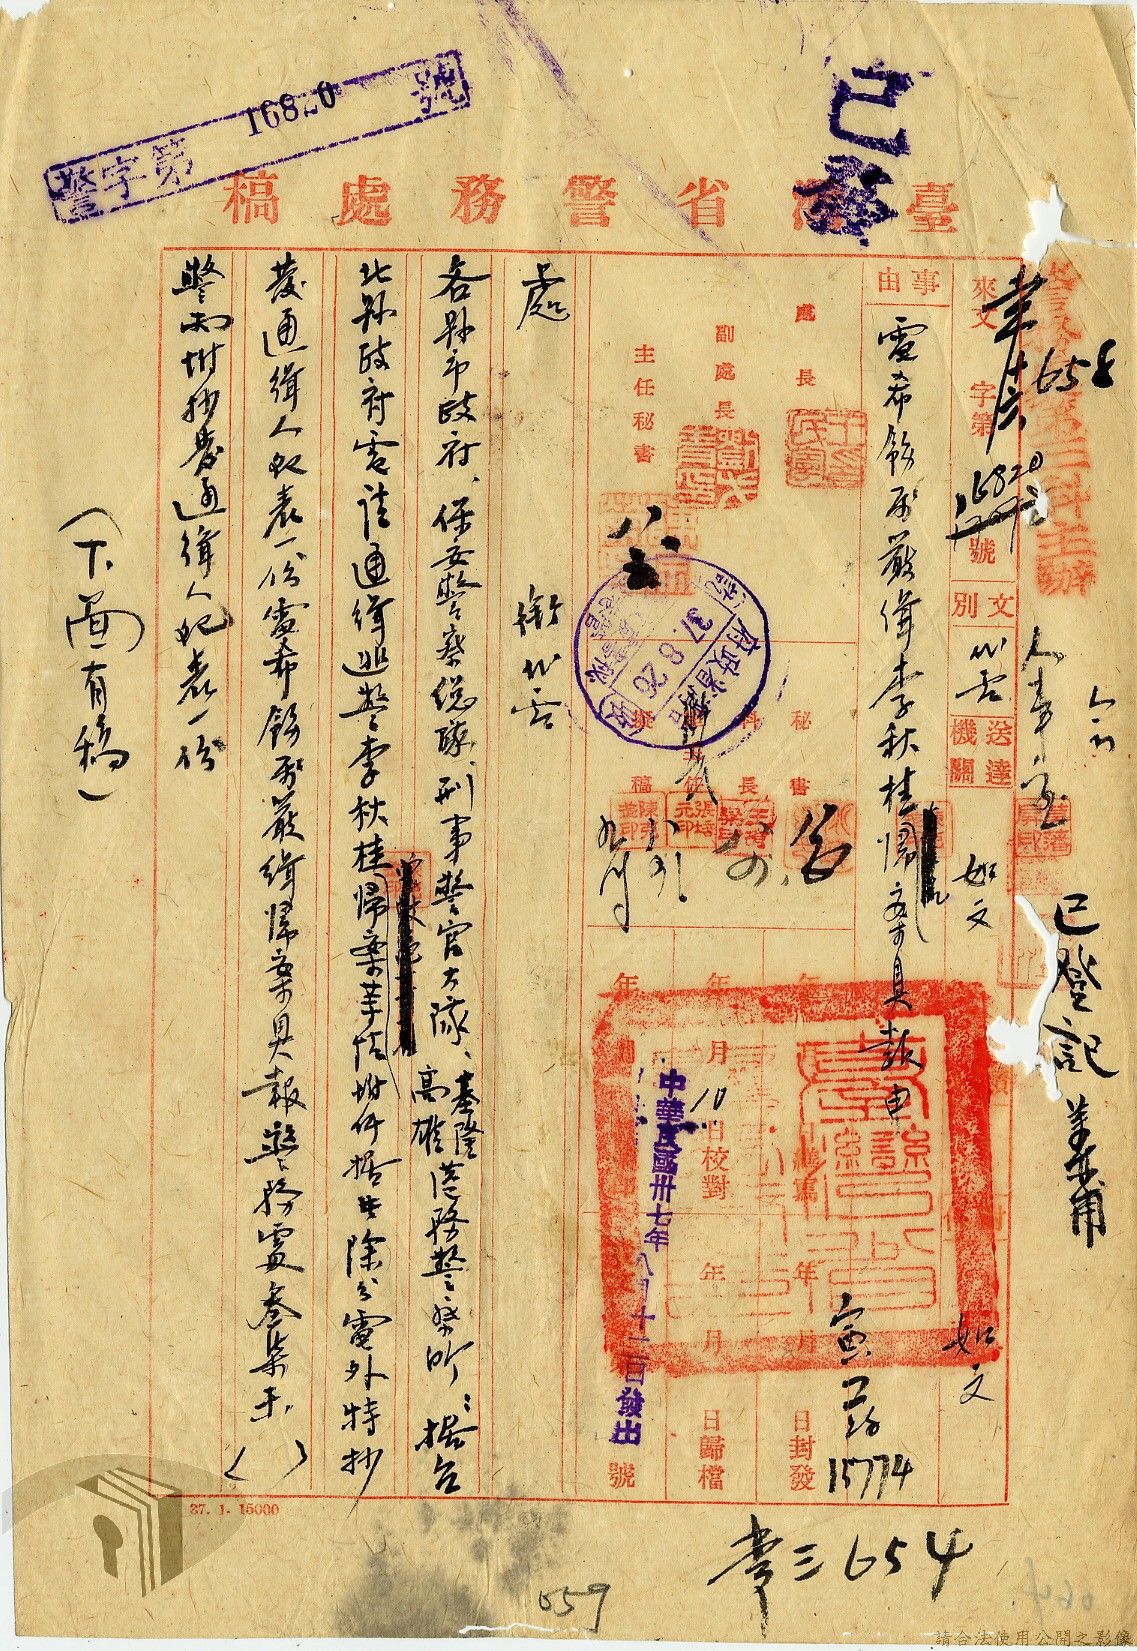 警字第 16820 號
已發
臺灣省警務處稿
第三科主辦
658
來文 字第 號
16820
文別
代電
送達機關
如文
如文
事由
電希飭屬嚴緝李秋桂歸案具報由
處長
副處長
主任秘書
秘書
科長
主任
擬稿
臺灣省政府
37.8.26
年 月 10 日校對
年 月 日封發
年 月 日歸檔
號
中華民國卅七年八月十二日發出
15774
已登記
人事室
處
衔代電
各縣市政府、保安警察總隊、刑事警官大隊、基隆高雄港務警察所:據台
北縣政府電請通緝逃警李秋桂歸案等情附件據此除分電外特抄
發通緝人犯表一份電希飭屬嚴緝歸案具報警務處
警丙附抄發通緝人犯表一份
(下面有稿)
37. 1. 15000
三654
059
請合法使用公開之影像